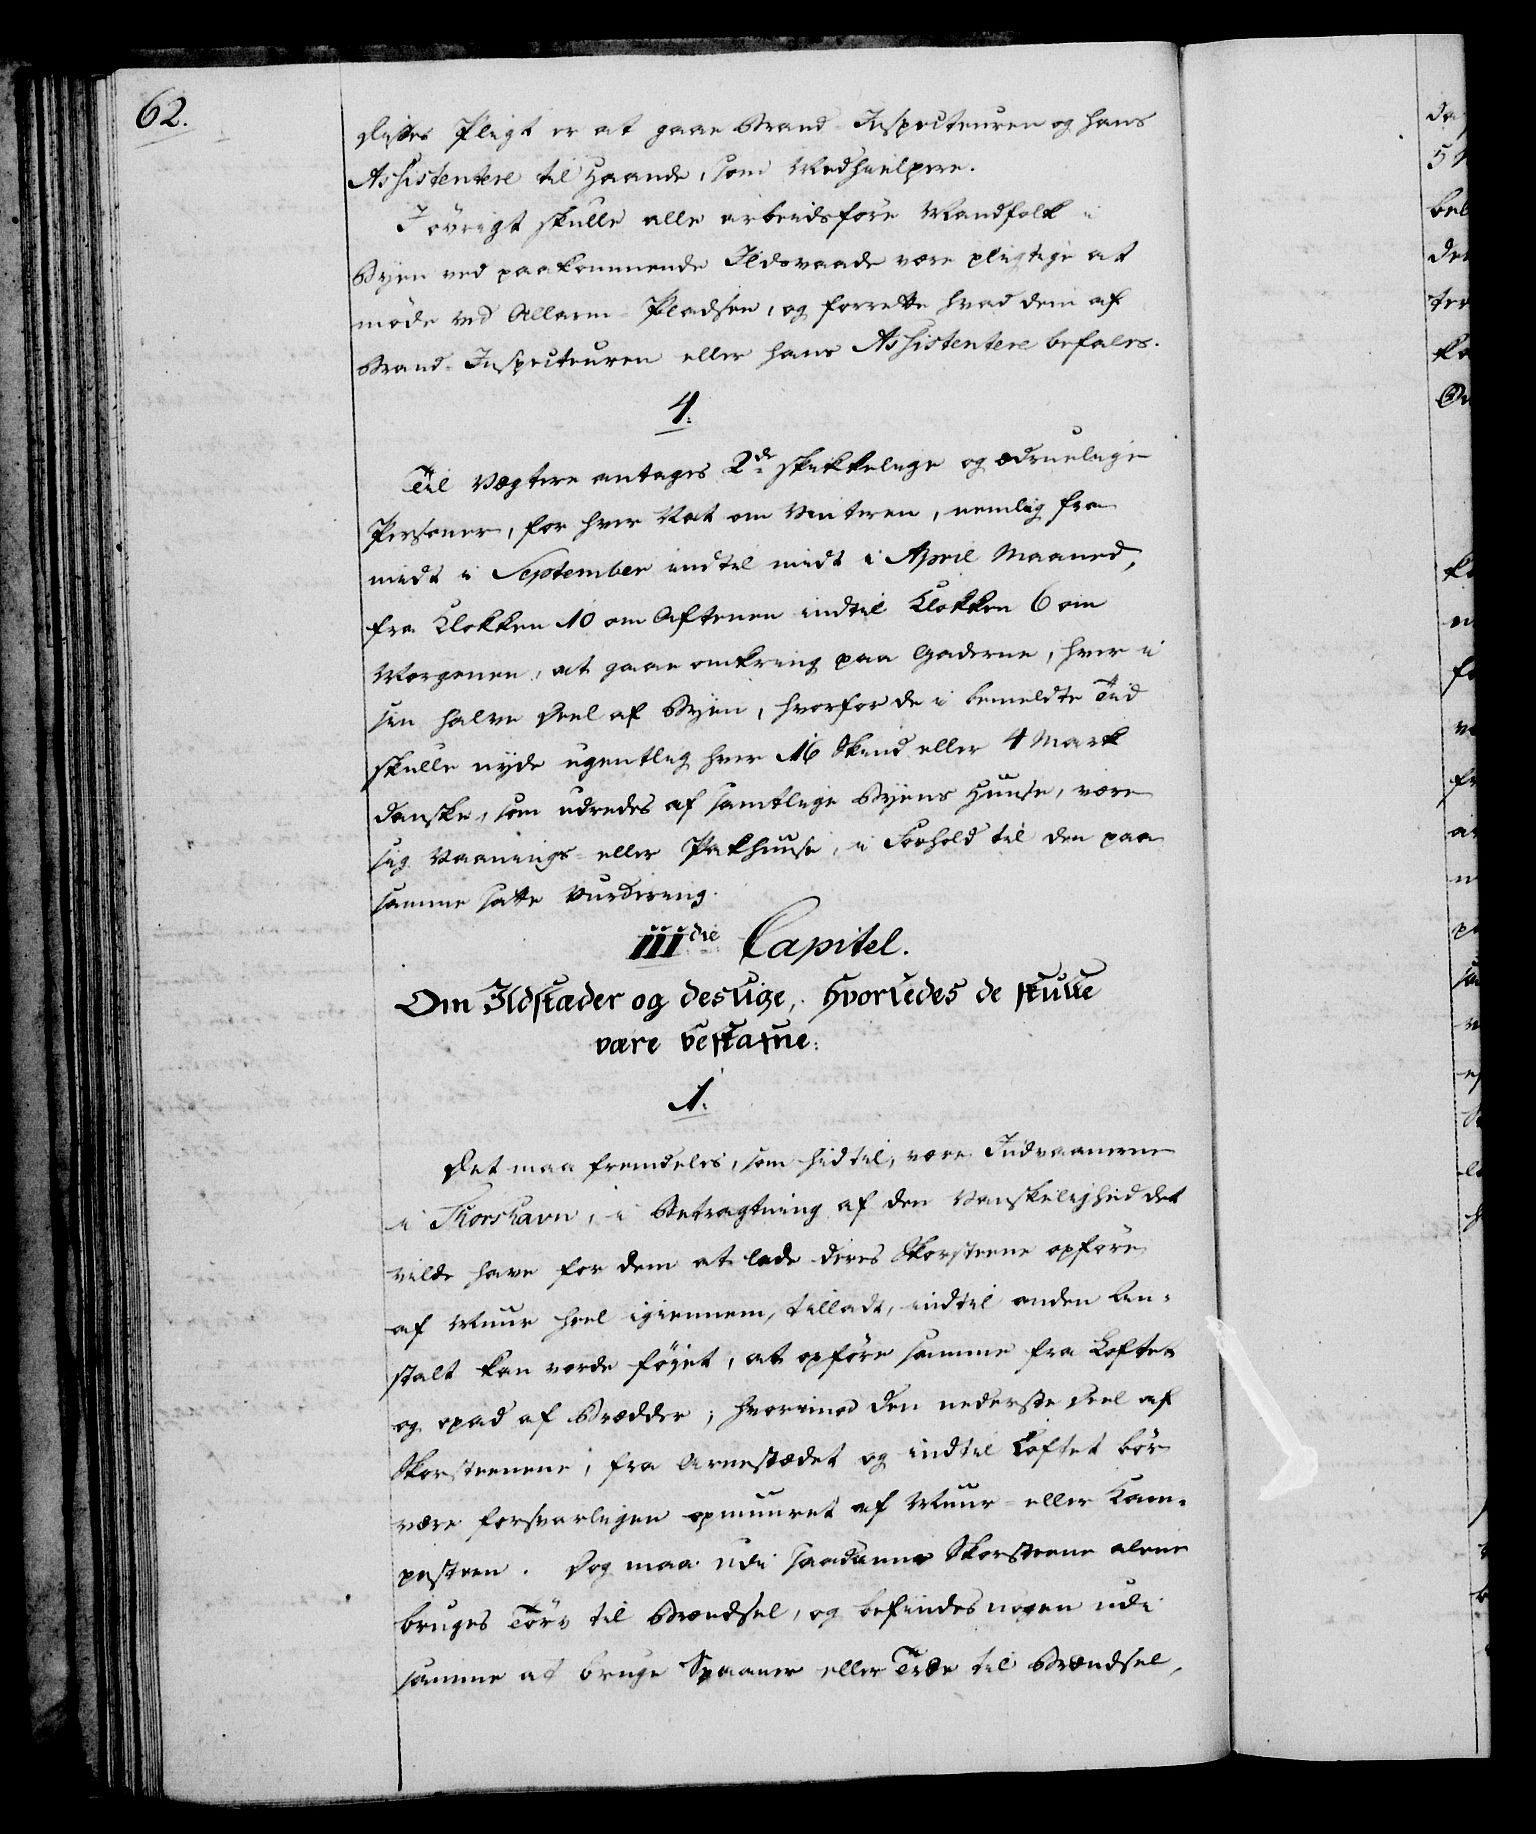 62.
Disses Pligt er at gaae Brand-Inspecteuren og hans
Assistentere til Haande, som Medhielpere.
I övrigt skulle alle arbeidsföre Mandfolk i
Byen ved paakommende Ildsvaade være pligtige at
möde ved Allarm-Pladsen, og forrette hvad dem af
Brand-Inspecteuren eller hans Assistentere befales.
4.
Til Vægtere antages 2de skikkelige og ædruelige
Personer, for hver Nat om Vinteren, nemlig fra
midt i September indtil midt i April Maaned,
fra Klokken 10 om Aftenen indtil Klokken 6 om
Morgenen, at gaae omkring paa Gaderne, hver i
sin halve Deel af Byen, hvorfor de i bemeldte Tid
skulle nyde ugentlig hver 16 Skind eller 4 Mark
danske, som udredes af samtlige Byens Huuse, være
sig Vaanings- eller Pakhuuse, i Forhold til den paa
samme satte Vurdering.
IIIdie Capitel.
Om Ildstæder og deslige, hvorledes de skulle
være beskafne.
1.
Det maa fremdeles, som hidtil, være Indvaanerne
i Thorshavn, i Betragtning af den Vanskelighed det
vilde have for dem at lade deres Skorsteene opföre
af Muur heel igiennem, tilladt, indtil anden An-
stalt kan vorde föjet, at opföre samme fra Loftet
og opad af Brædder; hvorimod den nederste Deel af
Skorsteenene, fra Arnestædet og indtil Loftet bör
være forsvarligen opmuuret af Muur- eller Kam-
pesteen. Dog maa udi saadanne Skorsteene alene
bruges Törv til Brændsel, og befindes nogen udi
samme at bruge Spaaner eller Træe til Brændsel,